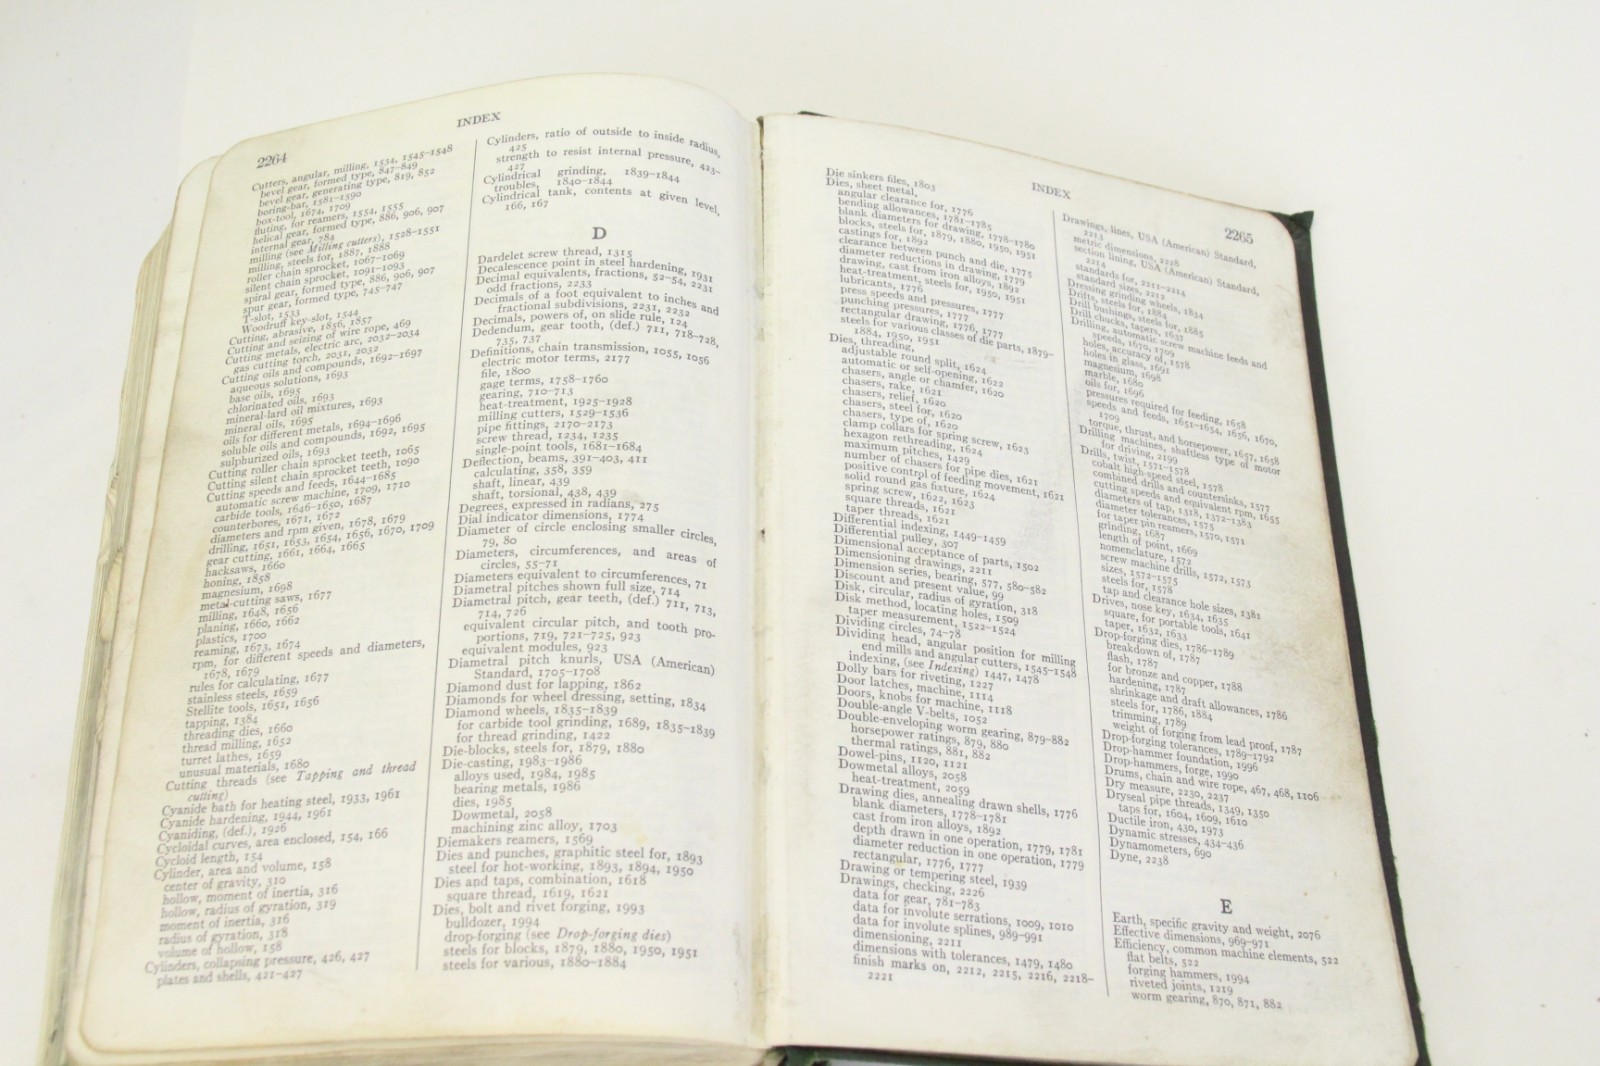 2264
INDEX
Cutters, angular, milling, 1534, 1545-1548
bevel gear, formed type, 847-849
bevel gear, generating type, 819, 852
boring-bar, 1581-1590
box-tool, 1674, 1709
fluting, for reamers, 1554, 1555
helical gear, formed type, 886, 906, 907
internal gear, 784
milling (see Milling cutters), 1528-1551
milling, steels for, 1887, 1888
roller chain sprocket, 1067-1069
silent chain sprocket, 1091-1093
spiral gear, formed type, 886, 906, 907
spur gear, formed type, 745-747
T-slot, 1533
Woodruff key-slot, 1544
Cutting, abrasive, 1856, 1857
Cutting and seizing of wire rope, 469
Cutting metals, electric arc, 2032-2034
gas cutting torch, 2031, 2032
Cutting oils and compounds, 1692-1697
aqueous solutions, 1693
base oils, 1695
chlorinated oils, 1693
mineral-lard oil mixtures, 1693
mineral oils, 1695
oils for different metals, 1694-1696
soluble oils and compounds, 1692, 1695
sulphurized oils, 1693
Cutting roller chain sprocket teeth, 1065
Cutting silent chain sprocket teeth, 1090
Cutting speeds and feeds, 1644-1685
automatic screw machine, 1709, 1710
carbide tools, 1646-1650, 1687
counterbores, 1671, 1672
diameters and rpm given, 1678, 1679
drilling, 1651, 1653, 1654, 1656, 1670, 1709
gear cutting, 1661, 1664, 1665
hacksaws, 1660
honing, 1858
magnesium, 1698
metal-cutting saws, 1677
milling, 1648, 1656
planing, 1660, 1662
plastics, 1700
reaming, 1673, 1674
rpm, for different speeds and diameters,
1678, 1679
rules for calculating, 1677
stainless steels, 1659
Stellite tools, 1651, 1656
tapping, 1384
threading dies, 1660
thread milling, 1652
turret lathes, 1659
unusual materials, 1680
Cutting threads (see Tapping and thread
cutting)
Cyanide bath for heating steel, 1933, 1961
Cyanide hardening, 1944, 1961
Cyaniding, (def.), 1926
Cycloidal curves, area enclosed, 154, 166
Cycloid length, 154
Cylinder, area and volume, 158
center of gravity, 310
hollow, moment of inertia, 316
hollow, radius of gyration, 319
moment of inertia, 316
radius of gyration, 318
volume of hollow, 158
Cylinders, collapsing pressure, 426, 427
plates and shells, 421-427
Cylinders, ratio of outside to inside radius,
425
strength to resist internal pressure, 423-
427
Cylindrical grinding, 1839-1844
troubles, 1840-1844
Cylindrical tank, contents at given level,
166, 167
D
Dardelet screw thread, 1315
Decalescence point in steel hardening, 1931
Decimal equivalents, fractions, 52-54, 2231
odd fractions, 2233
Decimals of a foot equivalent to inches and
fractional subdivisions, 2231, 2232
Decimals, powers of, on slide rule, 124
Dedendum, gear tooth, (def.) 711, 718-728,
735, 737
Definitions, chain transmission, 1055, 1056
electric motor terms, 2177
file, 1800
gage terms, 1758-1760
gearing, 710-713
heat-treatment, 1925-1928
milling cutters, 1529-1536
pipe fittings, 2170-2173
screw thread, 1234, 1235
single-point tools, 1681-1684
Deflection, beams, 391-403, 411
calculating, 358, 359
shaft, linear, 439
shaft, torsional, 438, 439
Degrees, expressed in radians, 275
Dial indicator dimensions, 1774
Diameter of circle enclosing smaller circles,
79, 80
Diameters, circumferences, and areas of
circles, 55-71
Diameters equivalent to circumferences, 71
Diametral pitches shown full size, 714
Diametral pitch, gear teeth, (def.) 711, 713,
714, 726
equivalent circular pitch, and tooth pro-
portions, 719, 721-725, 923
equivalent modules, 923
Diametral pitch knurls, USA (American)
Standard, 1705-1708
Diamond dust for lapping, 1862
Diamonds for wheel dressing, setting, 1834
Diamond wheels, 1835-1839
for carbide tool grinding, 1689, 1835-1839
for thread grinding, 1422
Die-blocks, steels for, 1879, 1880
Die-casting, 1983-1986
alloys used, 1984, 1985
bearing metals, 1986
dies, 1985
Dowmetal, 2058
machining zinc alloy, 1703
Diemakers reamers, 1569
Dies and punches, graphitic steel for, 1893
steel for hot-working, 1893, 1894, 1950
Dies and taps, combination, 1618
square thread, 1619, 1621
Dies, bolt and rivet forging, 1993
bulldozer, 1994
drop-forging (see Drop-forging dies)
steels for blocks, 1879, 1880, 1950, 1951
steels for various, 1880-1884
INDEX
2265
Die sinkers files, 1803
Dies, sheet metal,
angular clearance for, 1776
bending allowances, 1781-1785
blank diameters for drawing, 1778-1780
blocks, steels for, 1879, 1880, 1950, 1951
castings for, 1892
clearance between punch and die, 1775
diameter reductions in drawing, 1779
drawing, cast from iron alloys, 1892
heat-treatment, steels for, 1950, 1951
lubricants, 1776
press speeds and pressures, 1777
punching pressures, 1777
rectangular drawing, 1776, 1777
steels for various classes of die parts, 1879-
1884, 1950, 1951
Dies, threading,
adjustable round split, 1624
automatic or self-opening, 1622
chasers, angle or chamfer, 1620
chasers, rake, 1621
chasers, relief, 1620
chasers, steel for, 1620
chasers, type of, 1620
clamp collars for spring screw, 1623
hexagon rethreading, 1624
maximum pitches, 1429
number of chasers for pipe dies, 1621
positive control of feeding movement, 1621
solid round gas fixture, 1624
spring screw, 1622, 1623
square threads, 1621
taper threads, 1621
Differential indexing, 1449-1459
Differential pulley, 307
Dimensional acceptance of parts, 1502
Dimensioning drawings, 2211
Dimension series, bearing, 577, 580-582
Discount and present value, 99
Disk, circular, radius of gyration, 318
Disk method, locating holes, 1509
taper measurement, 1522-1524
Dividing circles, 74-78
Dividing head, angular position for milling
end mills and angular cutters, 1545-1548
indexing, (see Indexing) 1447, 1478
Dolly bars for riveting, 1227
Door latches, machine, 1114
Doors, knobs for machine, 1118
Double-angle V-belts, 1052
Double-enveloping worm gearing, 879-882
horsepower ratings, 879, 880
thermal ratings, 881, 882
Dowel-pins, 1120, 1121
Dowmetal alloys, 2058
heat-treatment, 2059
Drawing dies, annealing drawn shells, 1776
blank diameters, 1778-1781
cast from iron alloys, 1892
depth drawn in one operation, 1779, 1781
diameter reduction in one operation, 1779
rectangular, 1776, 1777
Drawing or tempering steel, 1939
Drawings, checking, 2226
data for gear, 781-783
data for involute serrations, 1009, 1010
data for involute splines, 989-991
dimensioning, 2211
dimensions with tolerances, 1479, 1480
finish marks on, 2212, 2215, 2216, 2218-
2221
Drawings, lines, USA (American) Standard,
2213
metric dimensions, 2228
section lining, USA (American) Standard,
2214
standards for, 2211-2214
standard sizes, 2212
Dressing grinding wheels, 1834
Drifts, steels for, 1884
Drill bushings, steels for, 1885
Drill chucks, tapers, 1637
Drilling, automatic screw machine feeds and
speeds, 1670, 1709
holes, accuracy of, 1578
holes in glass, 1691
magnesium, 1698
marble, 1680
oils for, 1696
pressures required for feeding, 1658
speeds and feeds, 1651-1654, 1656, 1670,
1709
torque, thrust, and horsepower, 1657, 1658
Drilling machines, shaftless type of motor
for driving, 2199
Drills, twist, 1571-1578
cobalt high-speed steel, 1578
combined drills and countersinks, 1577
cutting speeds and equivalent rpm, 1655
diameters of tap, 1318, 1372-1383
diameter tolerances, 1575
for taper pin reamers, 1570, 1571
grinding, 1687
length of point, 1669
nomenclature, 1572
screw machine drills, 1572, 1573
sizes, 1572-1575
steels for, 1578
tap and clearance hole sizes, 1381
Drives, nose key, 1634, 1635
square, for portable tools, 1641
taper, 1632, 1633
Drop-forging dies, 1786-1789
breakdown of, 1787
flash, 1787
for bronze and copper, 1788
hardening, 1787
shrinkage and draft allowances, 1786
steels for, 1786, 1884
trimming, 1789
weight of forging from lead proof, 1787
Drop-forging tolerances, 1789-1792
Drop-hammer foundation, 1996
Drop-hammers, forge, 1990
Drums, chain and wire rope, 467, 468, 1106
Dry measure, 2230, 2237
Dryseal pipe threads, 1349, 1350
taps for, 1604, 1609, 1610
Ductile iron, 430, 1973
Dynamic stresses, 434-436
Dynamometers, 690
Dyne, 2238
E
Earth, specific gravity and weight, 2076
Effective dimensions, 969-971
Efficiency, common machine elements, 522
flat belts, 522
forging hammers, 1994
riveted joints, 1219
worm gearing, 870, 871, 882